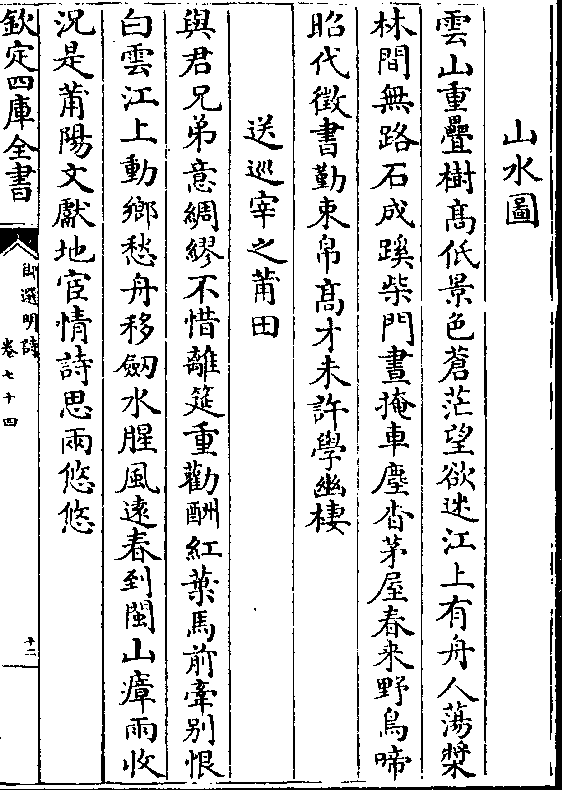 山水圖
雲山重疊樹髙低景色蒼茫望欲迷江上有舟人蕩槳
林間無路石成蹊柴門晝掩車塵杳茅屋春来野鳥啼
昭代徵書勤束帛髙才未許學幽棲
送巡宰之莆田
與君兄弟意綢繆不惜離筵重勸酬紅葉馬前牽别恨
白雲江上動鄉愁舟移劒水腥風逺春到閩山瘴雨收
況是莆陽文獻地宦情詩思兩悠悠
欽定四庫全書
御選明詩
卷七十四
十二